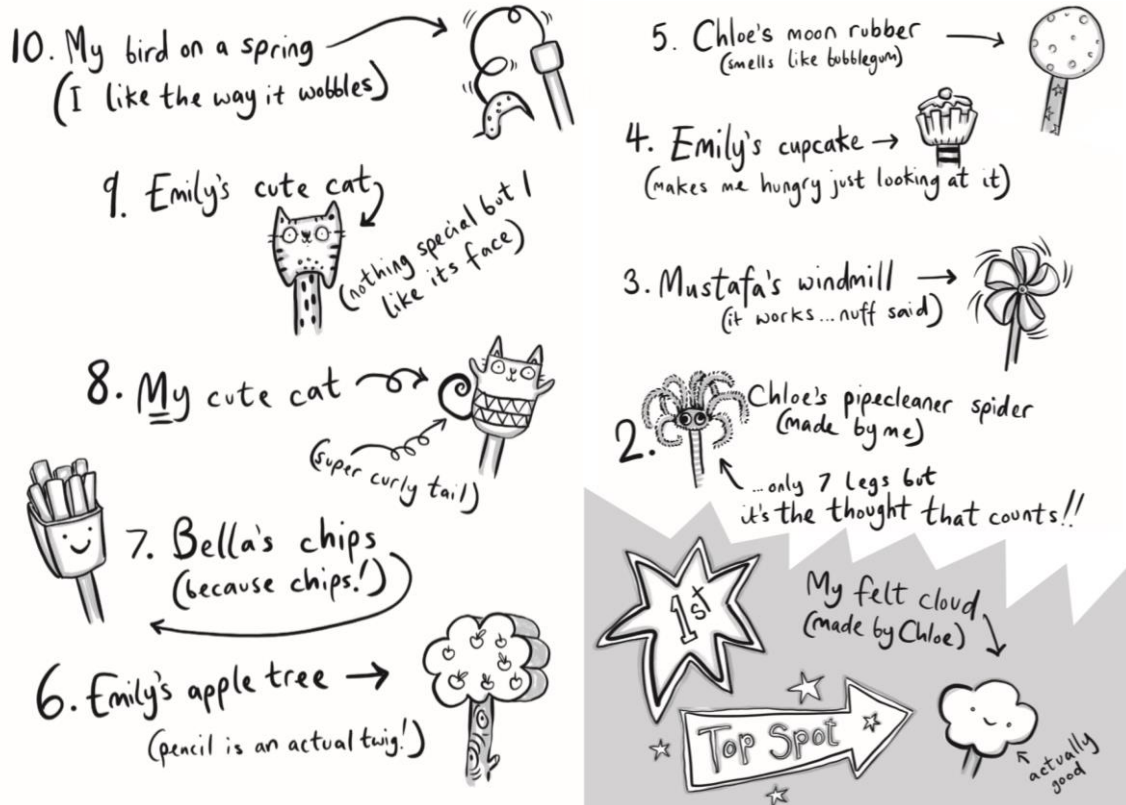 10. My bird on a spring
(I like the way it wobbles)
9. Emily's cute cat
(nothing special but I
like its face)
8. My cute cat
(super curly tail)
7. Bella's chips
(because chips!)
6. Emily's apple tree
(pencil is an actual twig!)
5. Chloe's moon rubber
(smells like bubblegum)
4. Emily's cupcake
(makes me hungry just looking at it)
3. Mustafa's windmill
(it works...nuff said)
2. Chloe's pipecleaner spider
(made by me)
...only 7 legs but
it's the thought that counts!!
1st
My felt cloud
(made by Chloe)
Top Spot
actually
good